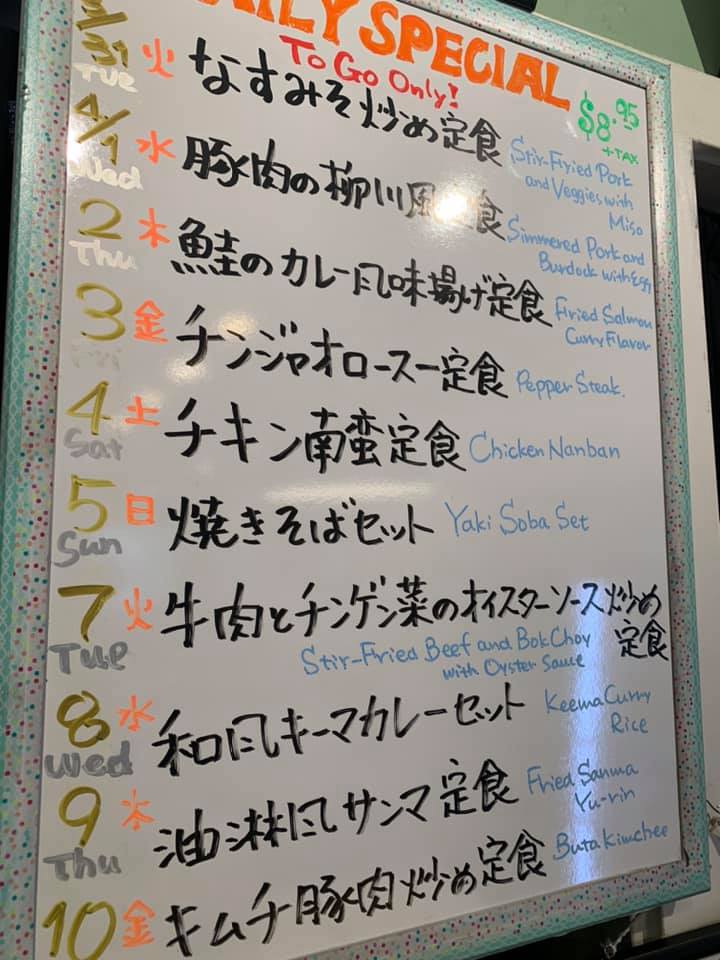 DAILY SPECIAL
To Go Only!
$8.95
+TAX
3/31 火 なすみそ炒め定食
Tue
Stir-Fried Pork
and Veggies with
Miso
4/1 水 豚肉の柳川風定食
Wed
Simmered Pork and
Burdock with Egg
2 木 鮭のカレー風味揚げ定食
Thu
Fried Salmon
Curry Flavor
3 金 チンジャオロースー定食
Fri
Pepper Steak.
4 土 チキン南蛮定食
Sat
Chicken Nanban
5 日 焼きそばセット
Sun
Yaki Soba Set
7 火 牛肉とチンゲン菜のオイスターソース炒め
定食
Tue
Stir-Fried Beef and Bok Choy
with Oyster Sauce
8 水 和風キーマカレーセット
Wed
Keema Curry
Rice
9 木 油淋風サンマ定食
Thu
Fried Sanma
Yu-rin
10 金 キムチ豚肉炒め定食
Buta Kimchee